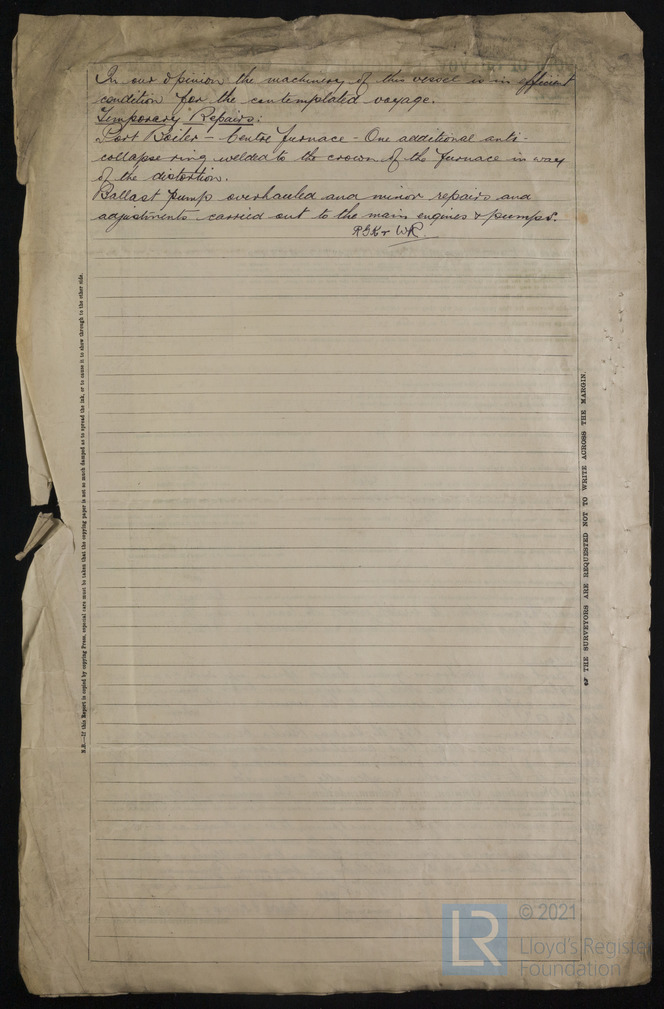 In our opinion the machinery of this vessel is in efficient
condition for the contemplated voyage.
Temporary Repairs:
Port Boiler – Centre furnace – One additional anti-
collapse ring welded to the crown of the furnace in way
of the distortion.
Ballast pump overhauled and minor repairs and
adjustments carried out to the main engines & pumps.
WR.
N.B.—If this Report is copied by copying Press, especial care must be taken that the copying paper is not so much damped as to spread the ink, or to cause it to show through to the other side.
THE SURVEYORS ARE REQUESTED NOT TO WRITE ACROSS THE MARGIN.
LR
© 2021
Lloyd's Register
Foundation